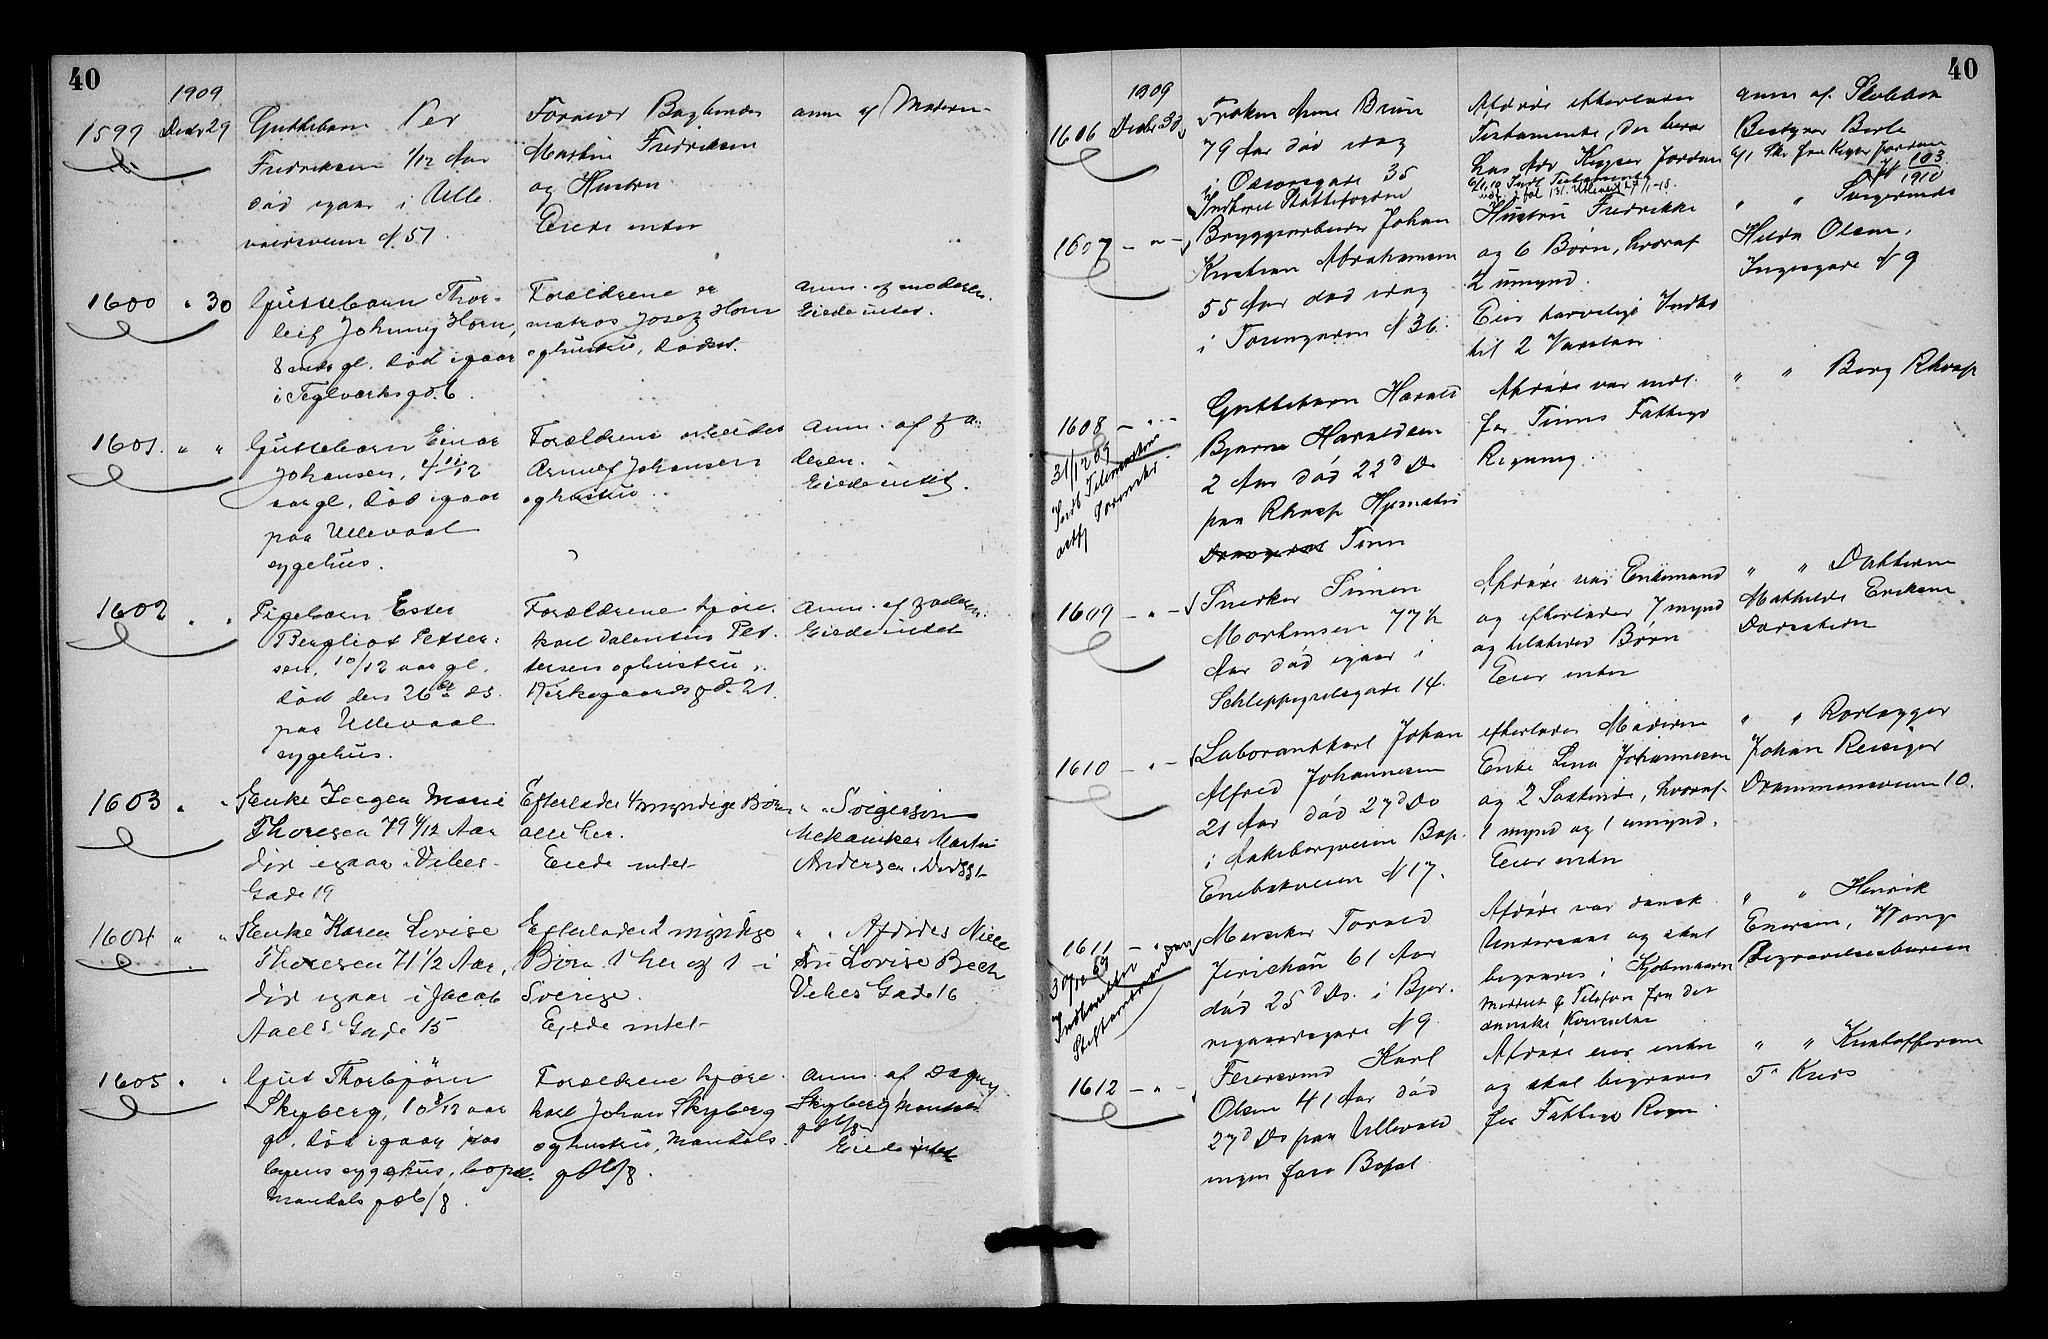 40
1909
1599 Decbr 29
Guttebarn Per
Fredriksen 1/12 Aar
død igaar i Ulle-
vaalsveien N. 57
Forældre
Martin Fredriksen
og Hustru
Eiede intet
anm. af Moderen
1600 " 30
Guttebarn Thor-
leif Johnny Horn,
8 mdr gl. død igaar
i Teglverksgd. 6.
Forældrene er
matros Josef Horn
og hustru, døde
anm. af moderen.
Eiede intet.
1601. " "
Guttebarn Einar
Johansen,
aar gl. død igaar
paa Ullevaal
sygehus.
Forældrene arbeider
Johansen
og hustru.
anm. af fa-
deren.
Eiede intet.
1602 " "
Pigebarn Ester
Bergliot Petter-
sen, 10/12 aar gl.
død den 26de ds.
paa Ullevaal
sygehus.
Forældrene kjøre-
karl Valentin Pet-
tersen og hustru,
Kirkegaardsgd. 21.
anm. af faderen.
Eiede intet
1603 " "
Enke Inger Marie
Thoresen 79 Aar
død igaar i Vibes
Gade 19
Efterlader 4 myndige Børn
alle her.
Eiede intet
" " Svigersøn
Mekaniker Martin
Andersen,
1604 " "
Enke Karen Lovise
Thoresen 71 1/2 Aar,
død igaar i Jacob
Aalls Gade 15
Efterlader 2 myndige
Børn 1 her og 1 i
Sverige.
Eiede intet
" " Afdødes Niece
Lovise Bech
Vibes Gade 16
1605 " "
Gut Thorbjørn
Skyberg, 10 aar
gl. død igaar paa
byens sygehus, bopæl
Mandals gd 6/8.
Forældrene kjøre-
karl Johan Skyberg
og hustru, Mandals
gd 6/8.
anm. af Dagny
Skyberg Mandals
gd 6/8
Eiede intet
40
1909
1606 Decbr 30
Frøken Anne Bruun
79 Aar død idag
i Oscarsgade 35
Afdøde efterlader
Testamente, der beror
hos Adv Keyser Jordan
anm. af Skolebe-
Bestyrer Berle
6/1 Skr fra Keyser Jordan
103
1910
1607 - " -
Bryggearbeider Johan
Kristian Abrahamsen
55 Aar død idag
i Torvegaden N 36.
Hustru Fredrikke
og 6 Børn, hvoraf
2 umynd.
Eier tarvelige Indbo
til 2 Værelser
" " Svigerinde
Hilda Olsen,
Ingesgade N 9
1608 - " -
31/12 09
Guttebarn Harald
Bjarne Haraldsen
2 Aar død 22d Ds
paa Rhosp Hjemsted
Tinn
Afdøde var indl.
for Tinns Fattigv
Regning.
" " Borg Rhosp
1609 - " -
Snedker Simen
Mortensen 77 1/2
Aar død igaar i
Schleppegrelsgade 14.
Afdøde var Enkemand
og efterlader 7 mynd
og tilstede Børn
Eier intet
" " Datteren
Mathilde Eriksen
Dørstokken
1610 - " -
Laborantkarl Johan
Alfred Johannesen
21 Aar død 27d Ds
i Akebergveien Bop.
Enebakveien N 17.
efterlader Moderen
Enke Lina Johannesen
og 2 Søskende, hvoraf
1 mynd og 1 umynd.
Eier intet
" " Rørlægger
Johan Reisiger
Drammensveien 10.
1611 - " -
30/12 09
Indberettet
Stiftamtmanden
Musiker Torald
Jerichau 61 Aar
død 25d Ds. i Bjer-
regaardsgade N 9
Afdøde var dansk
Undersaat og skal
begraves i Kjøbenhavn
Meddelt p Telefon fra det
danske Konsulat
" " Henrik
Enersen, Wang
Begravelsesbureau
1612 - " -
Feiersvend Karl
Olsen 41 Aar død
27d Ds paa Ullevaal
ingen fast Bopæl
Afdøde eier intet
og skal begraves
for Fattigv Regn.
" " Kristoffersen
T. Kreds